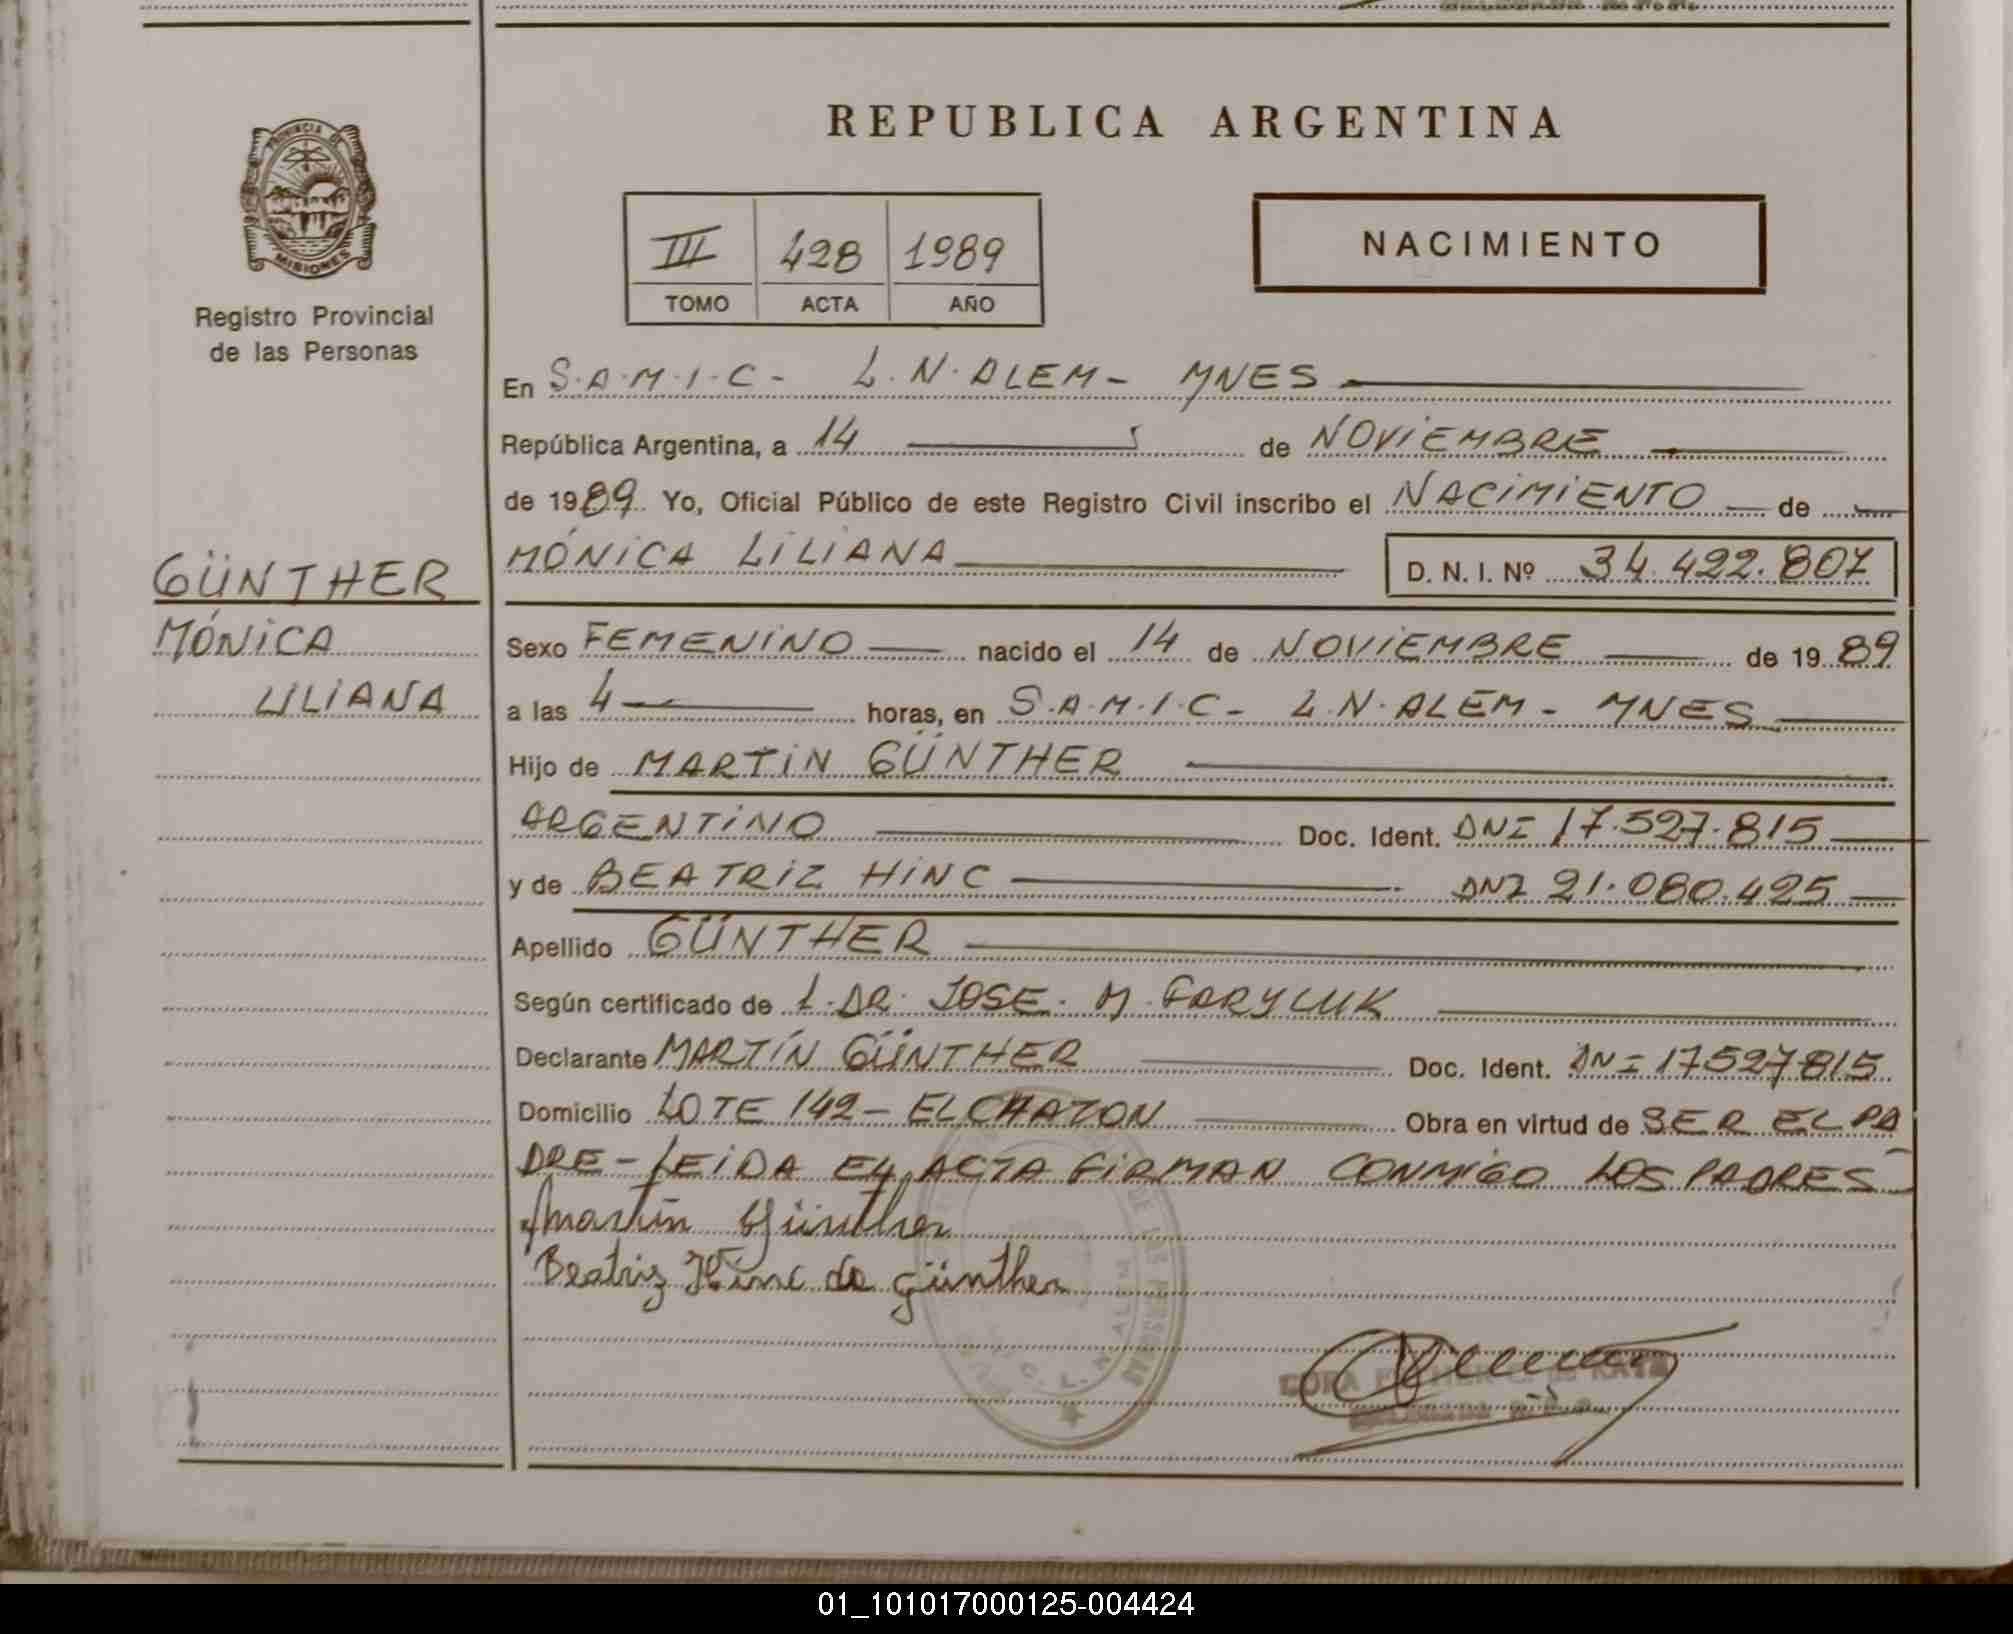 PROVINCIA DE
MISIONES
Registro Provincial
de las Personas
REPUBLICA ARGENTINA
III 428 1989
TOMO ACTA AÑO
NACIMIENTO
En S.A.M.I.C- L.N.ALEM- MNES
República Argentina, a 14 de NOVIEMBRE
de 1989. Yo, Oficial Público de este Registro Civil inscribo el NACIMIENTO de
MÓNICA LILIANA D. N. I. Nº 34.422.807
GÜNTHER
MÓNICA
LILIANA
Sexo FEMENINO nacido el 14 de NOVIEMBRE de 1989
a las 4 horas, en S.A.M.I.C- L.N.ALEM- MNES
Hijo de MARTIN GÜNTHER
ARGENTINO Doc. Ident. DNI 17.527.815
y de BEATRIZ HINC DNI 21.080.425
Apellido GÜNTHER
Según certificado de 1. DR. JOSE. M.
Declarante MARTÍN GÜNTHER Doc. Ident. DNI 17527815
Domicilio LOTE 142- EL CHATON Obra en virtud de SER EL PA
DRE- LEIDA EL ACTA FIRMAN CONMIGO LOS PADRES-
Martin Günther
Beatriz Hinc de günther
DE LAS PERSONAS
L. N. ALEM
01_101017000125-004424